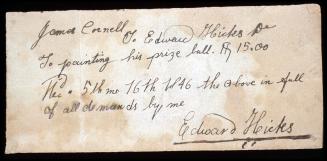 James Cornell
To Edward Hicks Dr
To painting his prize bull. $ 15.00
Recd. 5th mo 16th 1846 the above in full
of all demands by me
Edward Hicks